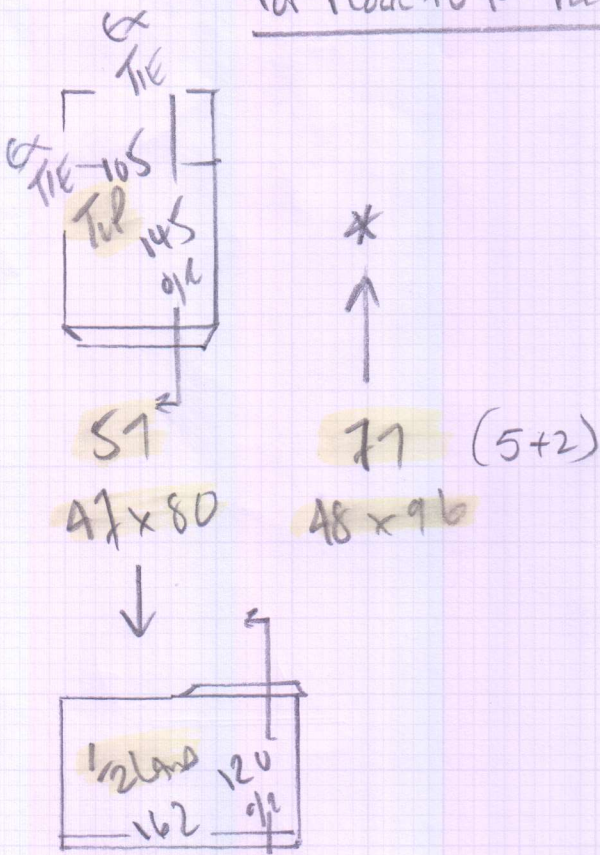 EX
TIE
EX
TIE 105
TOP
145
O/L
*
51
71 (5+2)
47 x 80
48 x 96
1/2 LAND
120
O/L
162